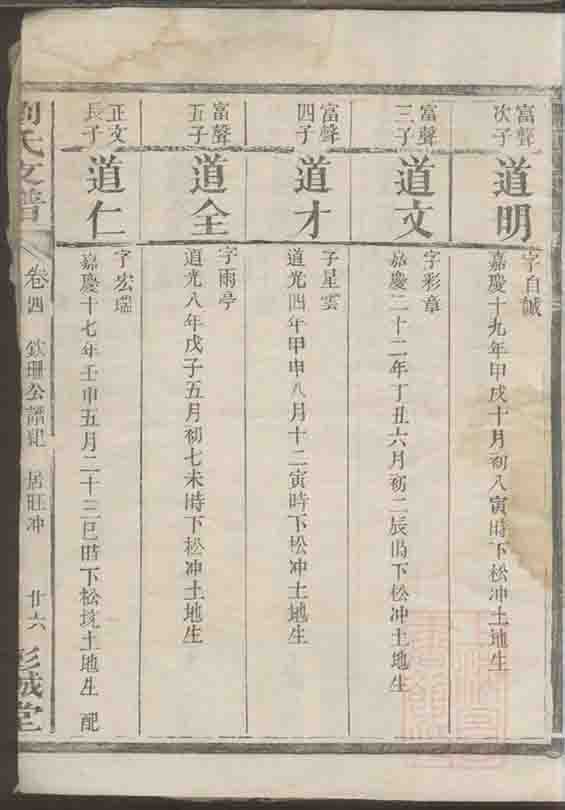 富聲
次子
道明
字自誠
嘉慶十九年甲戌十月初八寅時下松冲土地生
富聲
三子
道文
字彩章
嘉慶二十二年丁丑六月初二辰時下松冲土地生
富聲
四子
道才
子星雲
道光四年甲申八月十二寅時下松冲土地生
富聲
五子
道全
字雨亭
道光八年戊子五月初七未時下松冲土地生
正文
長子
道仁
字宏瑞
嘉慶十七年壬申五月二十三巳時下松冲土地生 配
劉氏支譜
卷四 欽珊公 居旺冲 廿六
彭城堂